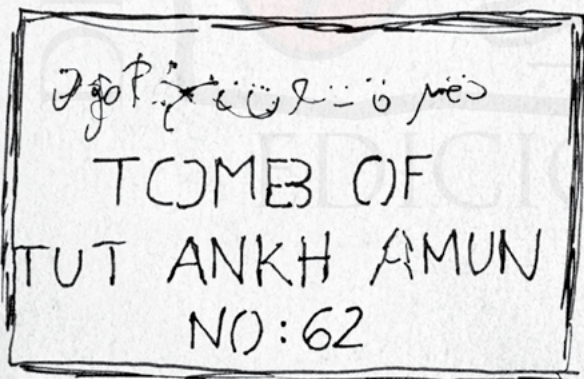 TOMB OF
TUT ANKH AMUN
NO:62